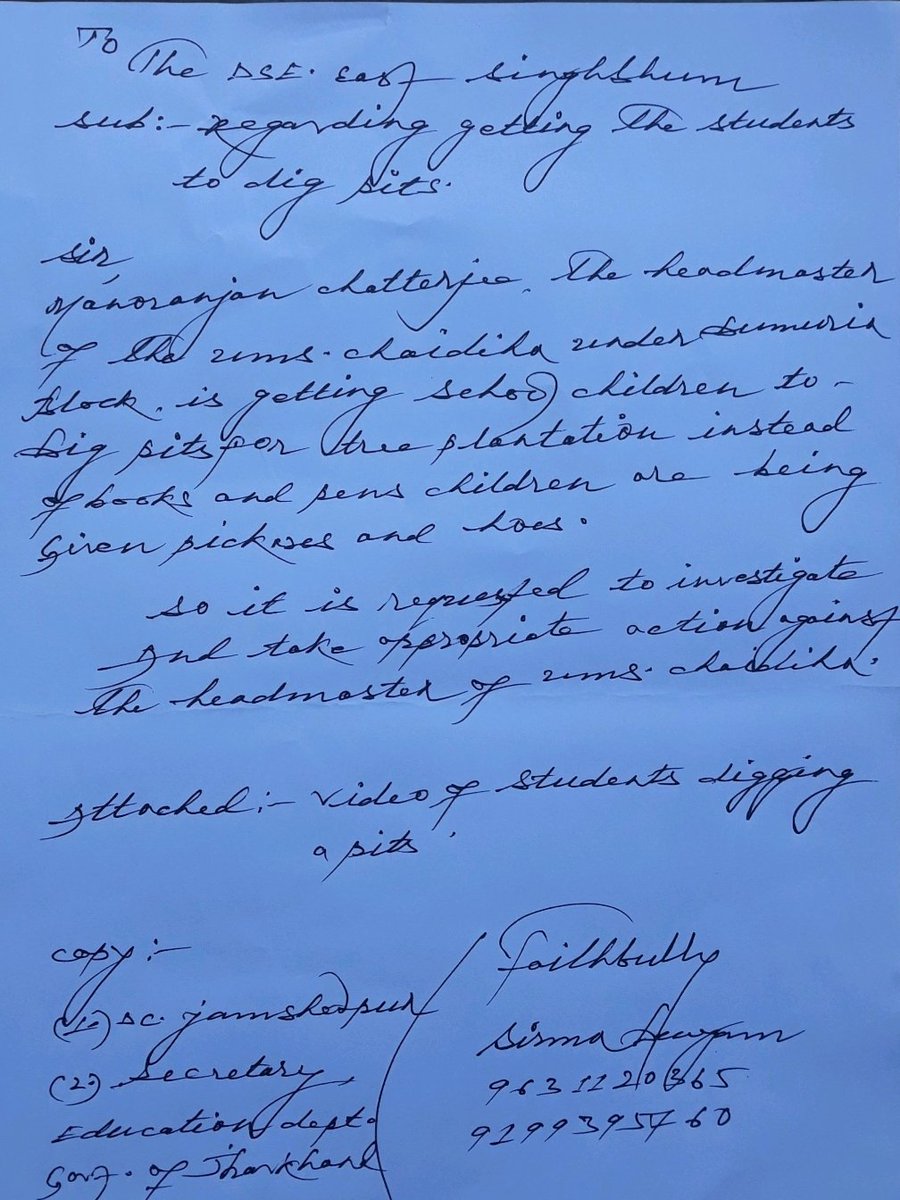 To
The DSE. East singhbhum
sub:- Regarding getting The students
to dig pits.
sir,
Manoranjan chatterjee. The headmaster
of the ums. chaidiha under Dumuria
Block. is getting school children to -
Dig pits for tree plantation instead
of books and pens children are being
Given pickaxes and hoes.
so it is requested to investigate
And take appropriate action against
The headmaster of ums. chaidiha.
Attached:- video of students digging
a pits.
copy:-
(1.) DC. jamshedpur
(2.) Secretary,
Education dept.
Govt. of Jharkhand
Faithfully
Sirma
9631120365